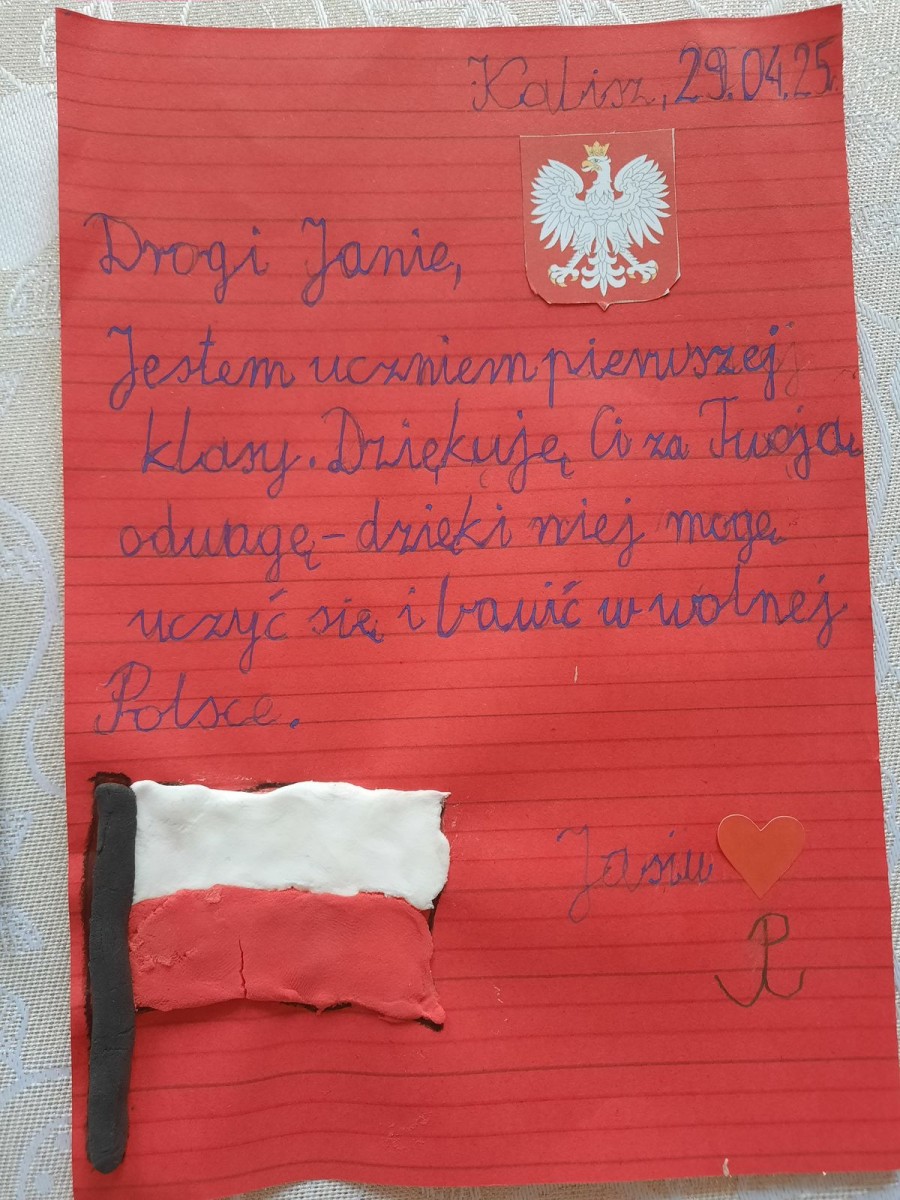 Kalisz, 29.04.25.
Drogi Janie,
Jestem uczniem pierwszej
klasy. Dziękuję Ci za Twoją
odwagę - dzięki niej mogę
uczyć się i bawić w wolnej
Polsce.
Jasiu